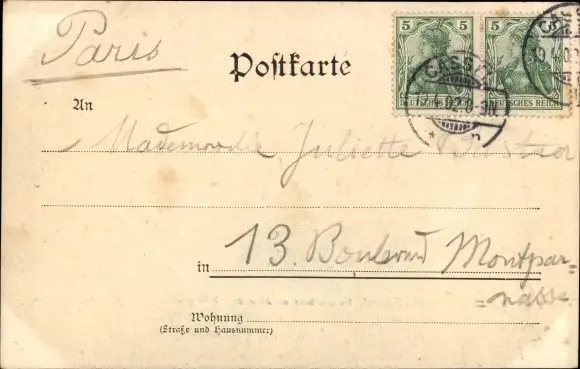 Paris
Postkarte
5 5
CASSEL
DEUTSCHES REICH DEUTSCHES REICH
An
Mademoiselle Juliette
in 13. Boulevard Montpar=
nasse
Wohnung
(Straße und Hausnummer)